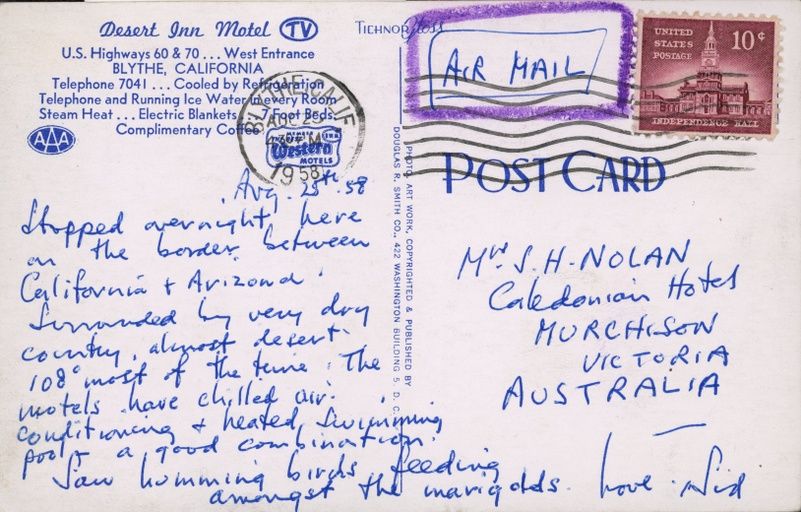 Desert Inn Motel TV
U.S. Highways 60 & 70 ... West Entrance
BLYTHE, CALIFORNIA
Telephone 7041 ... Cooled by Refrigeration
Telephone and Running Ice Water in every Room
Steam Heat ... Electric Blankets ... 7 Foot Beds
Complimentary Coffee
AAA
BLYTHE CALIF
AUG 25
1958
Western
MOTELS
TICHNOR Gloss
AIR MAIL
UNITED
STATES
POSTAGE
10¢
INDEPENDENCE HALL
PHOTO, ART WORK, COPYRIGHTED & PUBLISHED BY
DOUGLAS R. SMITH CO., 422 WASHINGTON BUILDING 5, D. C.
POST CARD
Aug. 25th. 58
Stopped overnight here
on the border between
California + Arizona.
Surrounded by very dry
country, almost desert.
108° most of the time. The
motels have chilled air.
conditioning + heated swimming
pools a good combination.
Saw humming birds feeding
amongst the marigolds. Love. Sid
Mrs S. H. NOLAN
Caledonian Hotel
MURCHISON
VICTORIA
AUSTRALIA